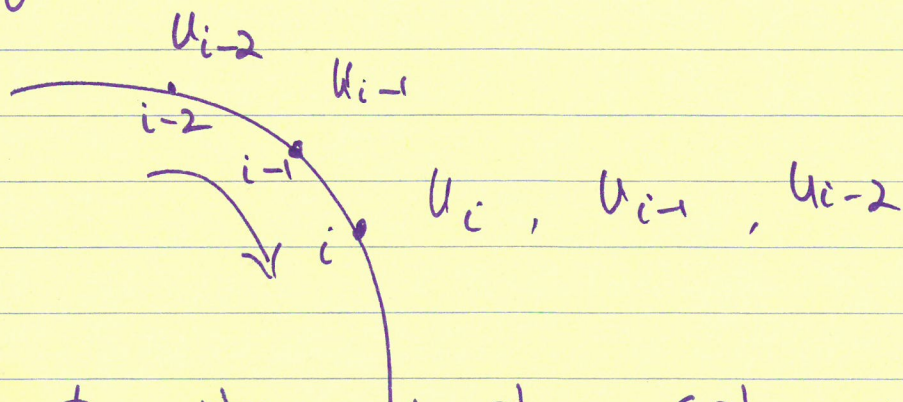 U_{i-2}
U_{i-1}
i-2
i-1
U_i , U_{i-1} , U_{i-2}
i